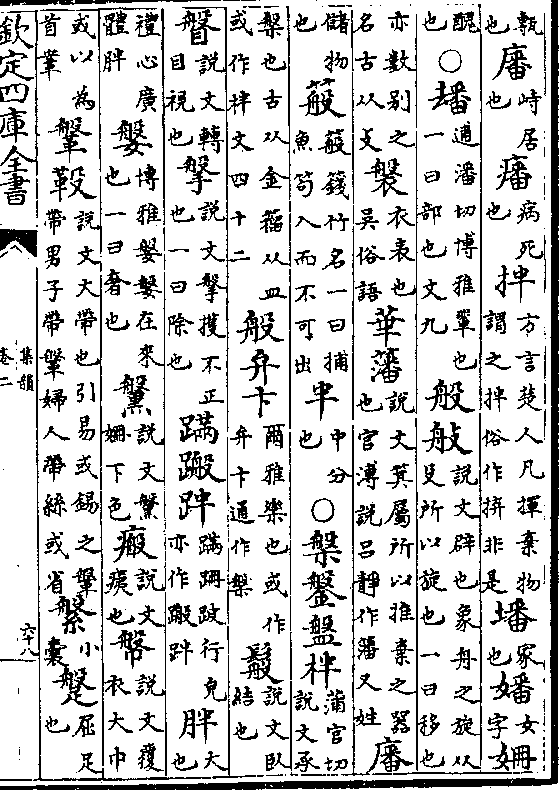 甎也㢖峙居也㿈病死也拌方言楚人凡揮棄物謂之拌俗作拚非是墦冢也嬏女姍女字
醜也○𡎊逋潘切博雅單也一曰部也文九般𦨗說文辟也象舟之旋从殳所以旋也一曰移也
亦數别之名古从攴褩衣表也吳俗語華藩說文箕屬所以推棄之器也官溥說吕靜作籓又姓㢖
儲物也䈲䈲篯竹名一曰捕魚笱入而不可出半中分也○槃鎜盤柈蒲官切說文承
槃也古从金籀从皿或作柈文四十二般弁卞爾雅樂也或作弁卞通作槃鬆說文臥結也
䀨說文轉目視也搫說文搫擭不正也一曰除也蹣蹳跘蹣跚跛行皃亦作蹳跘胖大也
禮心廣體胖媻博雅媻媻往來也一曰奢也䰉說文䰉姍下色瘢說文痍也幋說文覆衣大巾
或以為首鞶鞶鞁說文大帶也引易或錫之鞶帶男子帶鞶婦人帶絲或省縏小囊蹩屈足也
欽定四庫全書
集韻
卷二
六十八